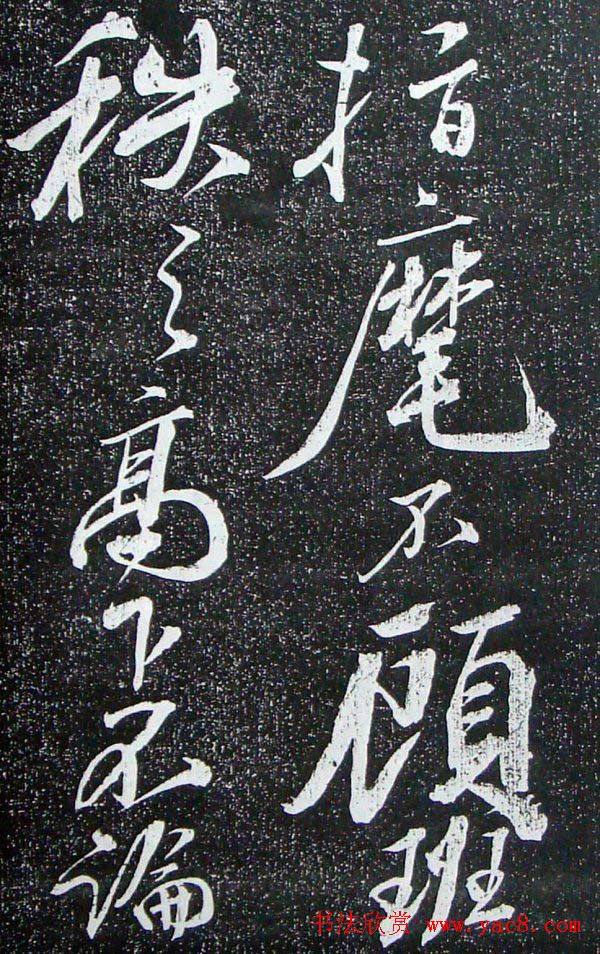 指麾不顧班
秩之高下不論
书法欣赏 www.yac8.com